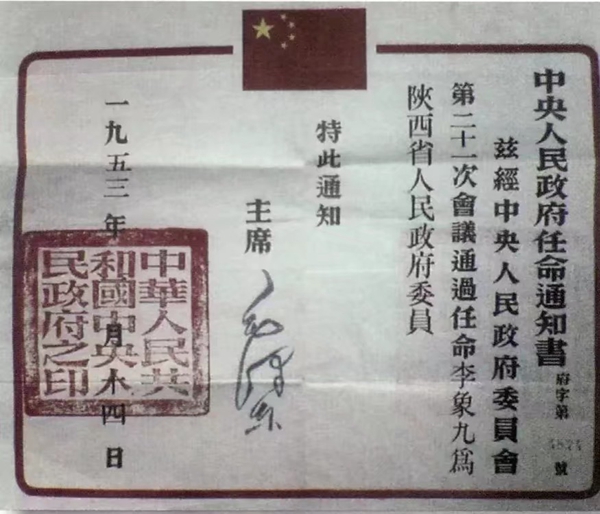 中央人民政府任命通知書
府字第
號
茲經中央人民政府委員會
第二十一次會議通過任命李象九爲
陝西省人民政府委員
特此通知
主席
毛澤東
一九五三年
月
四日
中華人民共
和國中央人
民政府之印